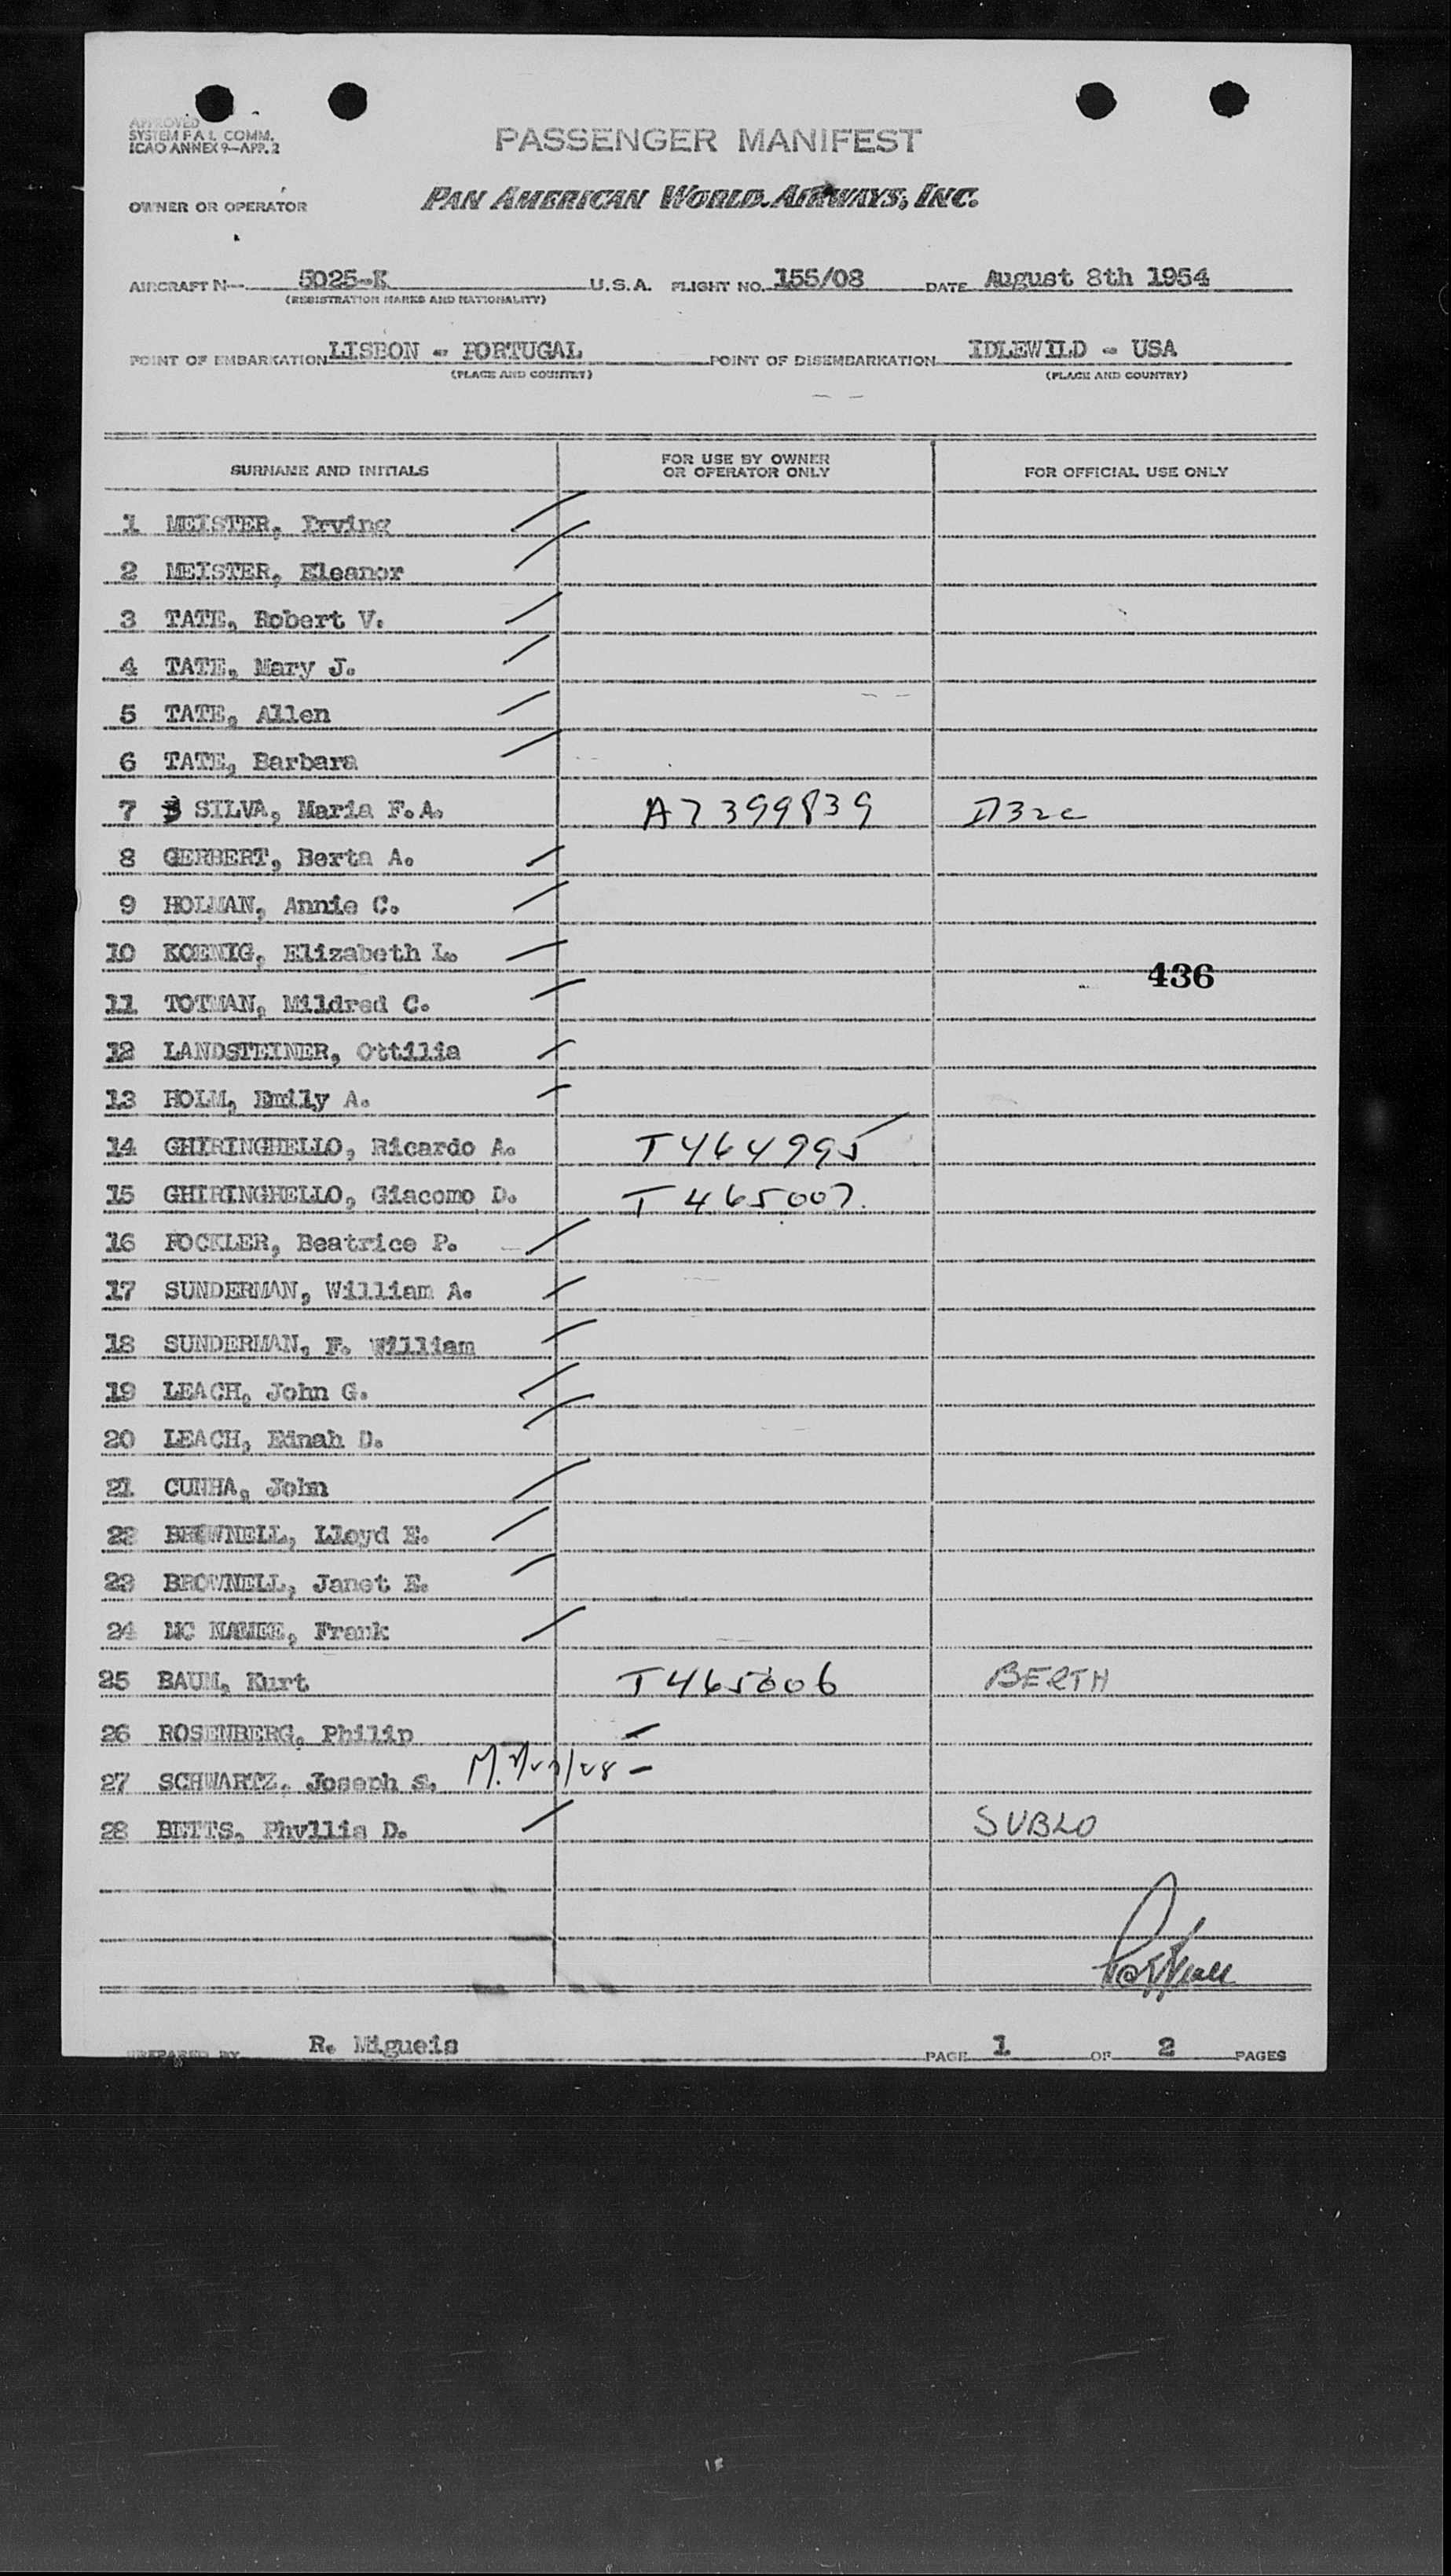 APPROVED
SYSTEM F.A.L. COMM.
ICAO ANNEX 9—APP. 2
PASSENGER MANIFEST
OWNER OR OPERATOR PAN AMERICAN WORLD AIRWAYS, INC.
AIRCRAFT N— 5025-K U.S.A. FLIGHT NO. 155/08 DATE August 8th 1954
(REGISTRATION MARKS AND NATIONALITY)
POINT OF EMBARKATION LISBON - PORTUGAL POINT OF DISEMBARKATION IDLEWILD - USA
(PLACE AND COUNTRY) (PLACE AND COUNTRY)
SURNAME AND INITIALS FOR USE BY OWNER OR OPERATOR ONLY FOR OFFICIAL USE ONLY
1 MEISTER, Irving
2 MEISTER, Eleanor
3 TATE, Robert V.
4 TATE, Mary J.
5 TATE, Allen
6 TATE, Barbara
7 SILVA, Maria F.A. A7399839
8 GERBERT, Berta A.
9 HOLMAN, Annie C.
10 KOENIG, Elizabeth L.
436
11 TOTMAN, Mildred C.
12 LANDSTEINER, Ottilia
13 HOLM, Emily A.
14 GHIRINGHELLO, Ricardo A. T464995
15 GHIRINGHELLO, Giacomo D. T465007.
16 FOCKLER, Beatrice P.
17 SUNDERMAN, William A.
18 SUNDERMAN, F. William
19 LEACH, John G.
20 LEACH, Ednah D.
21 CUNHA, John
22 BROWNELL, Lloyd E.
23 BROWNELL, Janet E.
24 MC NAMEE, Frank
25 BAUM, Kurt T465006 BERTH
26 ROSENBERG, Philip
27 SCHWARTZ, Joseph S.
28 BETTS, Phyllis D. SUBLO
PREPARED BY R. Migueis PAGE 1 OF 2 PAGES